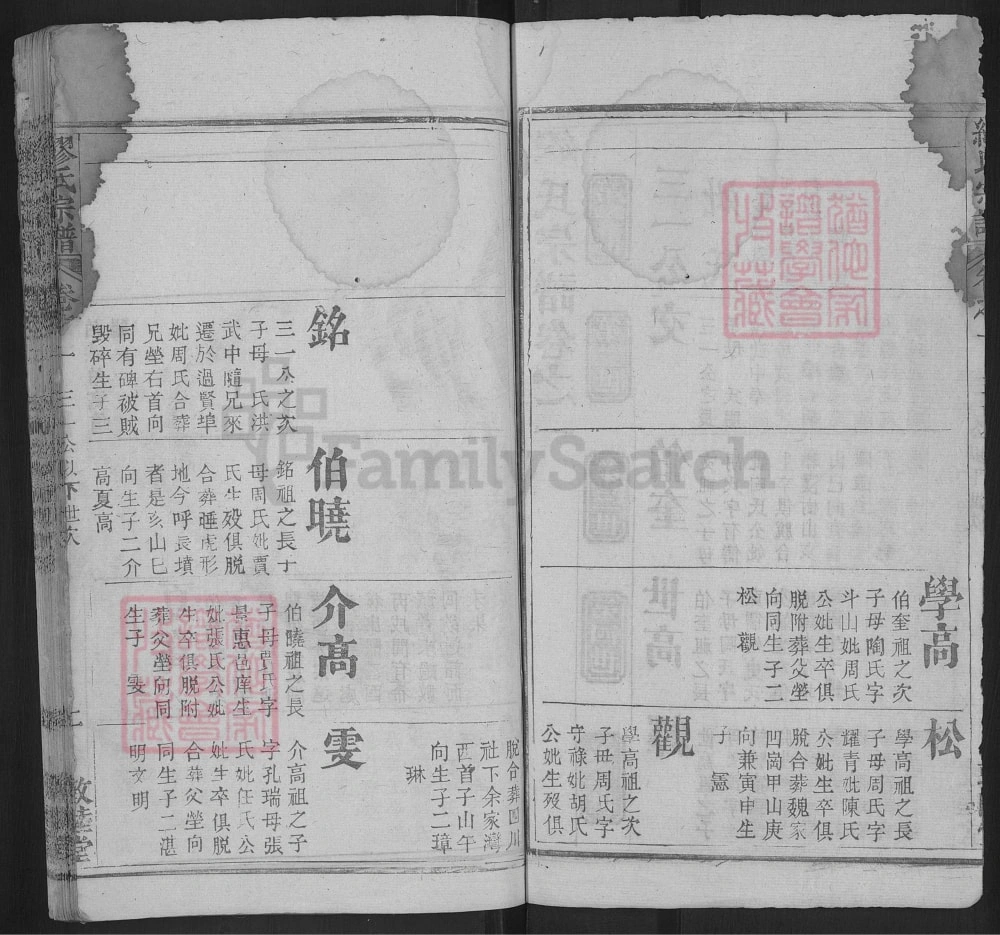 學高
伯奎祖之次
子母陶氏字
斗山妣周氏
公妣生卒俱
脫附葬父塋
向同生子二
松 觀
松
學高祖之長
子母周氏字
耀青妣陳氏
公妣生卒俱
脫合葬魏家
凹崗甲山庚
向兼寅申生
子 憲
觀
學高祖之次
子母周氏字
守祿妣胡氏
公妣生歿俱
脫合葬四川
社下余家灣
酉首子山午
向生子二璋
琳
銘
三一公之次
子母 氏洪
武中隨兄來
遷於過賢埠
妣周氏合葬
兄塋右首向
同有碑被賊
毀碎生子三
伯曉
銘祖之長子
母周氏妣賈
氏生歿俱脫
合葬睡虎形
地今呼長墳
者是亥山巳
向生子二介
高夏高
介高
伯曉祖之長
子母賈氏字
景惠邑庠生
妣張氏公妣
生卒俱脫附
葬父塋向同
生子 雯
雯
介高祖之子
字孔瑞母張
氏妣任氏公
妣生卒俱脫
合葬父塋向
同生子二湛
明文明
繆氏宗譜 卷
三一公以下世次
七
敦睦堂
FamilySearch